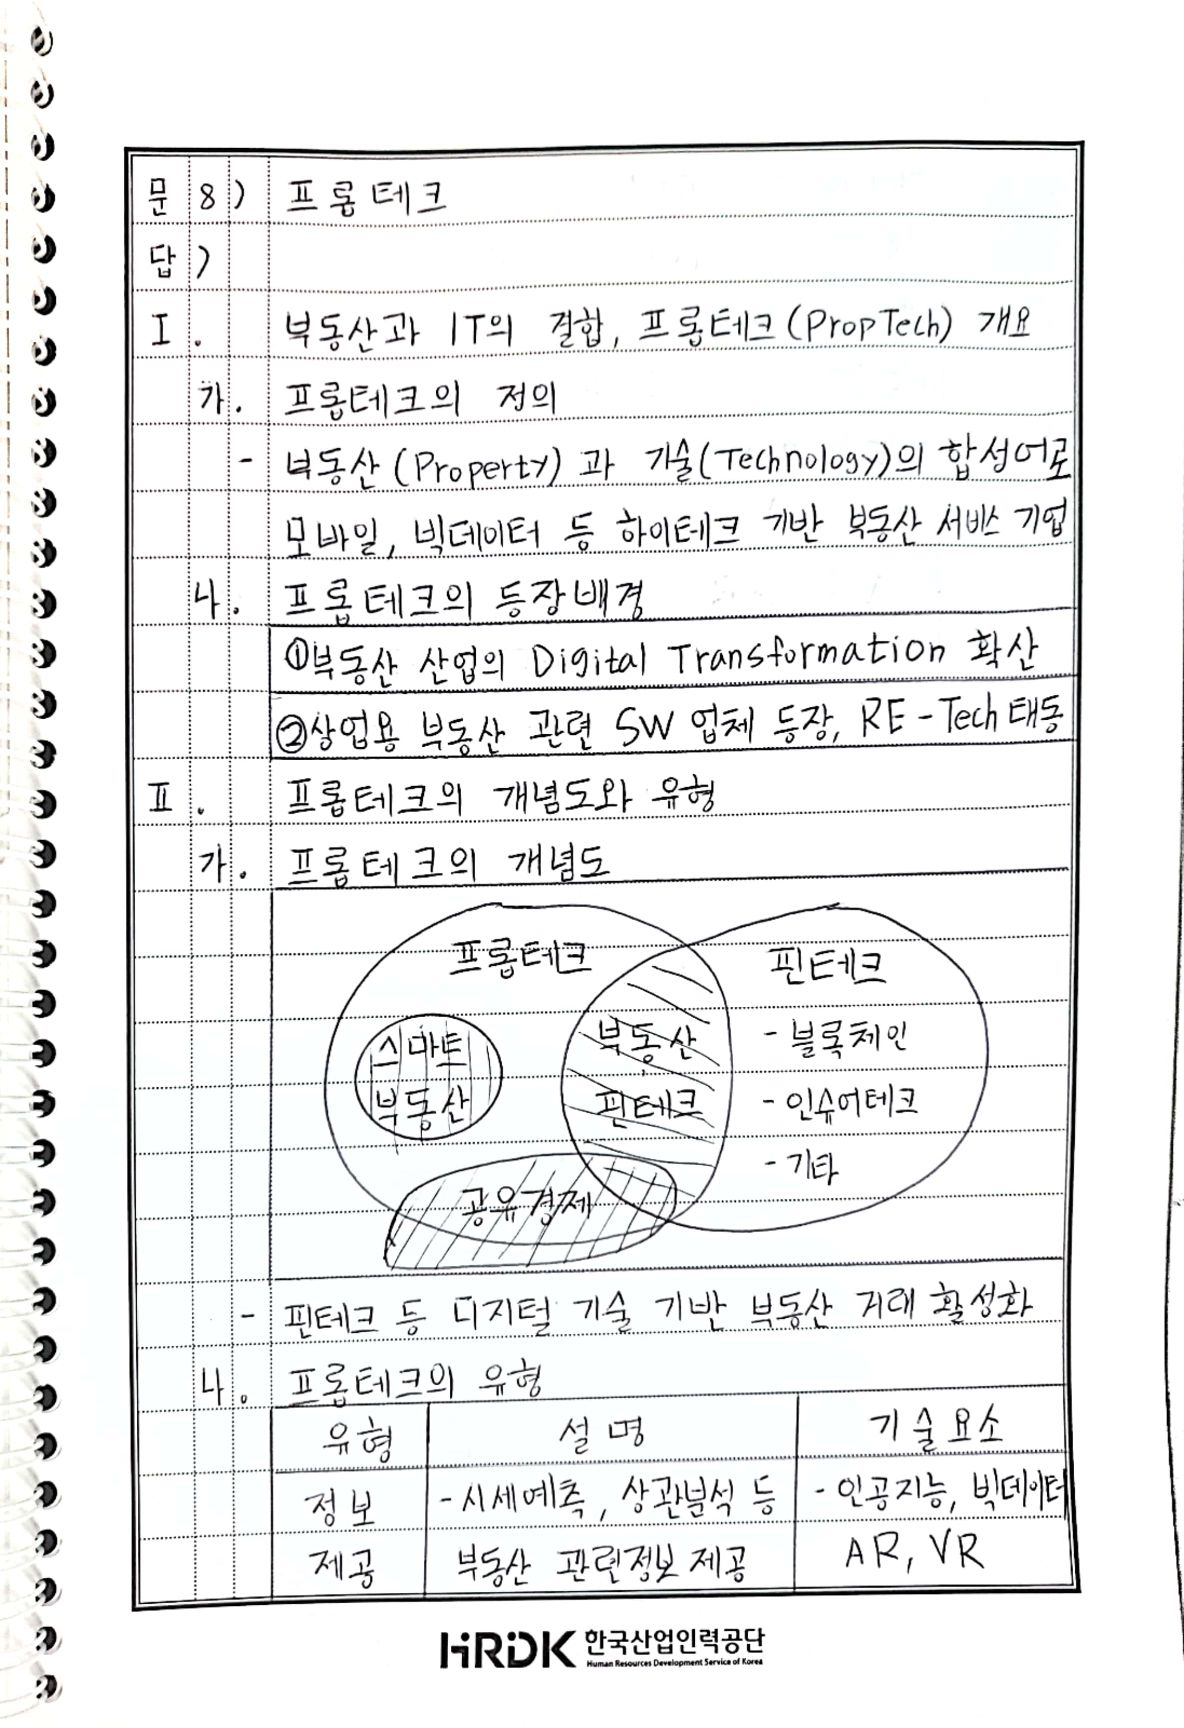 문 8) 프롭테크
답)
I. 부동산과 IT의 결합, 프롭테크(PropTech) 개요
가. 프롭테크의 정의
- 부동산(Property)과 기술(Technology)의 합성어로
모바일, 빅데이터 등 하이테크 기반 부동산 서비스 기업
나. 프롭테크의 등장배경
①부동산 산업의 Digital Transformation 확산
②상업용 부동산 관련 SW 업체 등장, RE-Tech 태동
II. 프롭테크의 개념도와 유형
가. 프롭테크의 개념도
프롭테크 핀테크
스마트 부동산 - 블록체인
부동산 핀테크 - 인슈어테크
- 기타
공유경제
- 핀테크 등 디지털 기술 기반 부동산 거래 활성화
나. 프롭테크의 유형
유형 설명 기술요소
정보 - 시세예측, 상관분석 등 - 인공지능, 빅데이터
제공 부동산 관련정보 제공 AR, VR
HRDK 한국산업인력공단
Human Resources Development Service of Korea